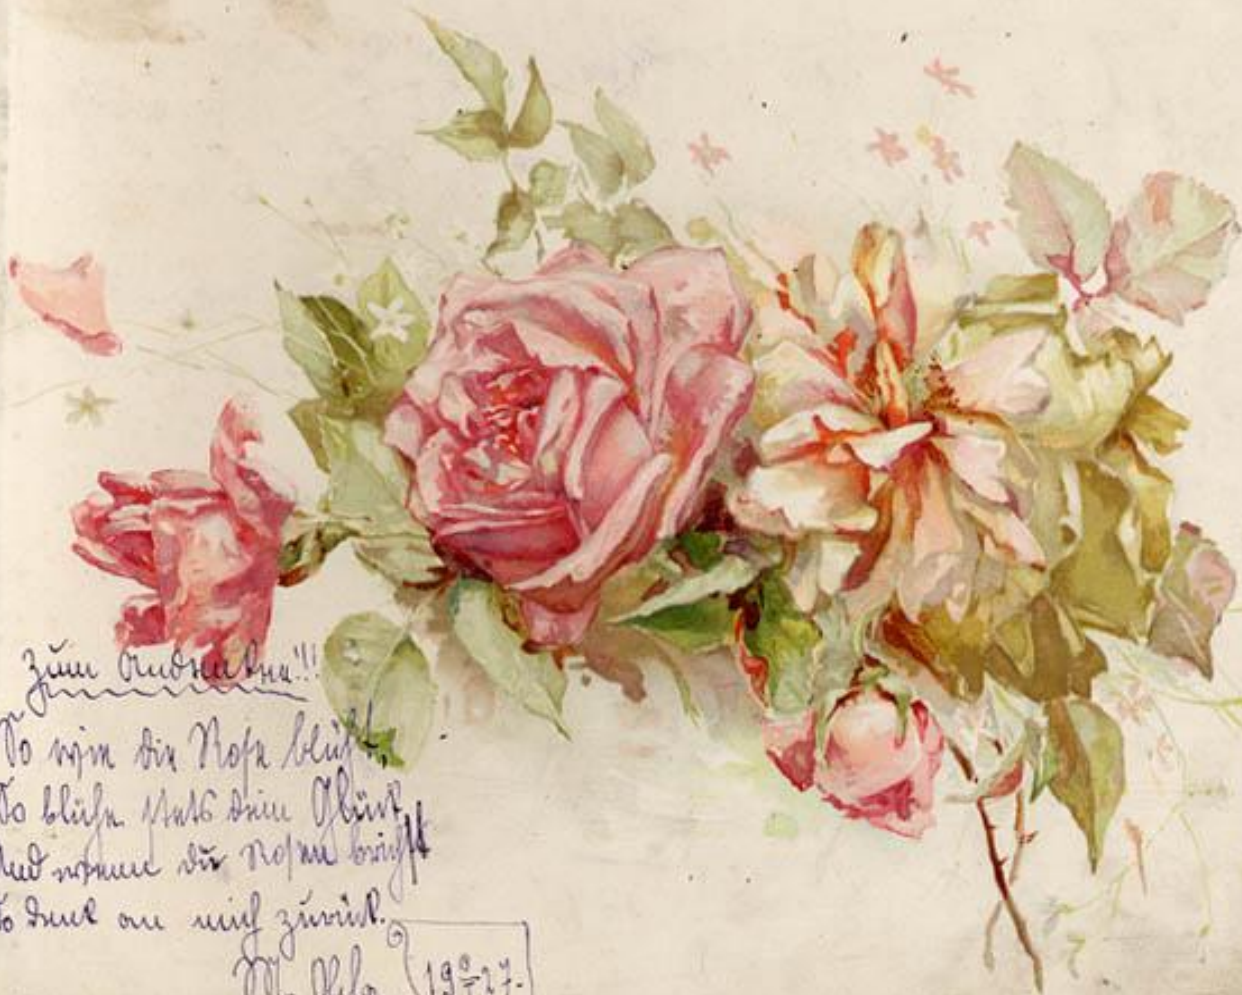 Zum Andenken!!!
So wie die Rose blüht,
So blühe stets dein Glück,
Und wenn du Rosen brichst
So denk an mich zurück.
19 9/- 27.